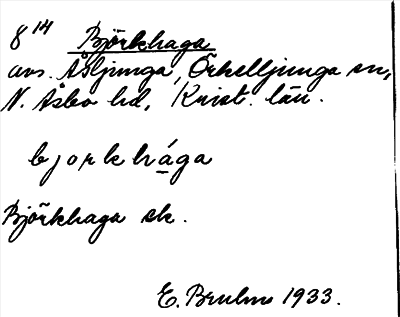 8 14 Björkhaga
avs. Åsljunga, Örkelljunga sn,
N. Åsbo hd, Krist. län.
bjorkhága
Björkhaga sk.
E. Bruhn 1933.